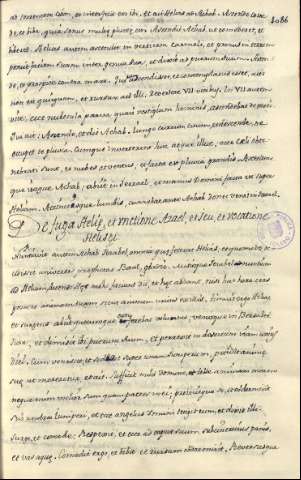 1086
ad torrentem Cison, et interfecit eos ibi. et ait Helias ad Achab. Ascende comede
et bibe, quia sonus multæ pluviæ est. Ascendit Achab ut comederet, et
biberet. Helias autem ascendit in verticem Carmeli, et pronus in terram
posuit faciem suam inter genua sua, et dixit ad puerum suum. Ascende,
et prospice contra mare. Qui cum ascendisset, et contemplatus esset, ait
non est quicquam, et rursum ait illi, revertere VII vicibus. In VII autem
vice, ecce nubecula parva quasi vestigium hominis, ascendebat de mari.
Qui ait: Ascende, et dic Achab. iunge currum tuum et descende, ne
occupet te pluvia. Cumque se verteret huc atque illuc, ecce cæli contenebrati
sunt, et nubes et ventus, et facta est pluvia grandis. Ascendens
itaque Achab, abiit in Jezrael, et manus Domini facta est super
Heliam. Accinctisque lumbis, currebat ante Achab donec veniret in Jezrael.
De fuga Heliæ, et unctione Azael, et Ieu, et vocatione
Helisei
Nuntiavit autem Achab Iezabel, omnia quæ fecerat Helias, et quomodo occidisset
universos prophetas Baal, gladio. Misitque Iezabel nuntium
ad Heliam dicens. Hæc mihi faciant dii, et hæc addant, nisi hac hora cras
posuero animam tuam sicut animam unius ex illis. Timuit ergo Helias,
et surgens abiit quocumque eum ferebat voluntas, venitque in Bersabee
Iuda, et dimisit ibi puerum suum, et perrexit in desertum viam unius
diei. Cum venisset, et sederet super unam iuniperum, petivit animæ
suæ ut moreretur, et ait. Sufficit mihi Domine, et tolle animam meam
neque enim melior sum quam patres mei; proiecitque se, et obdormivit
sub umbra iuniperi, et ecce angelus Domini tetigit eum, et dixit illi.
Surge, et comede. Respexit, et ecce ad caput suum, subcinericius panis,
et vas aquæ. Comedit ergo, et bibit et rursum obdormivit. Reversusque